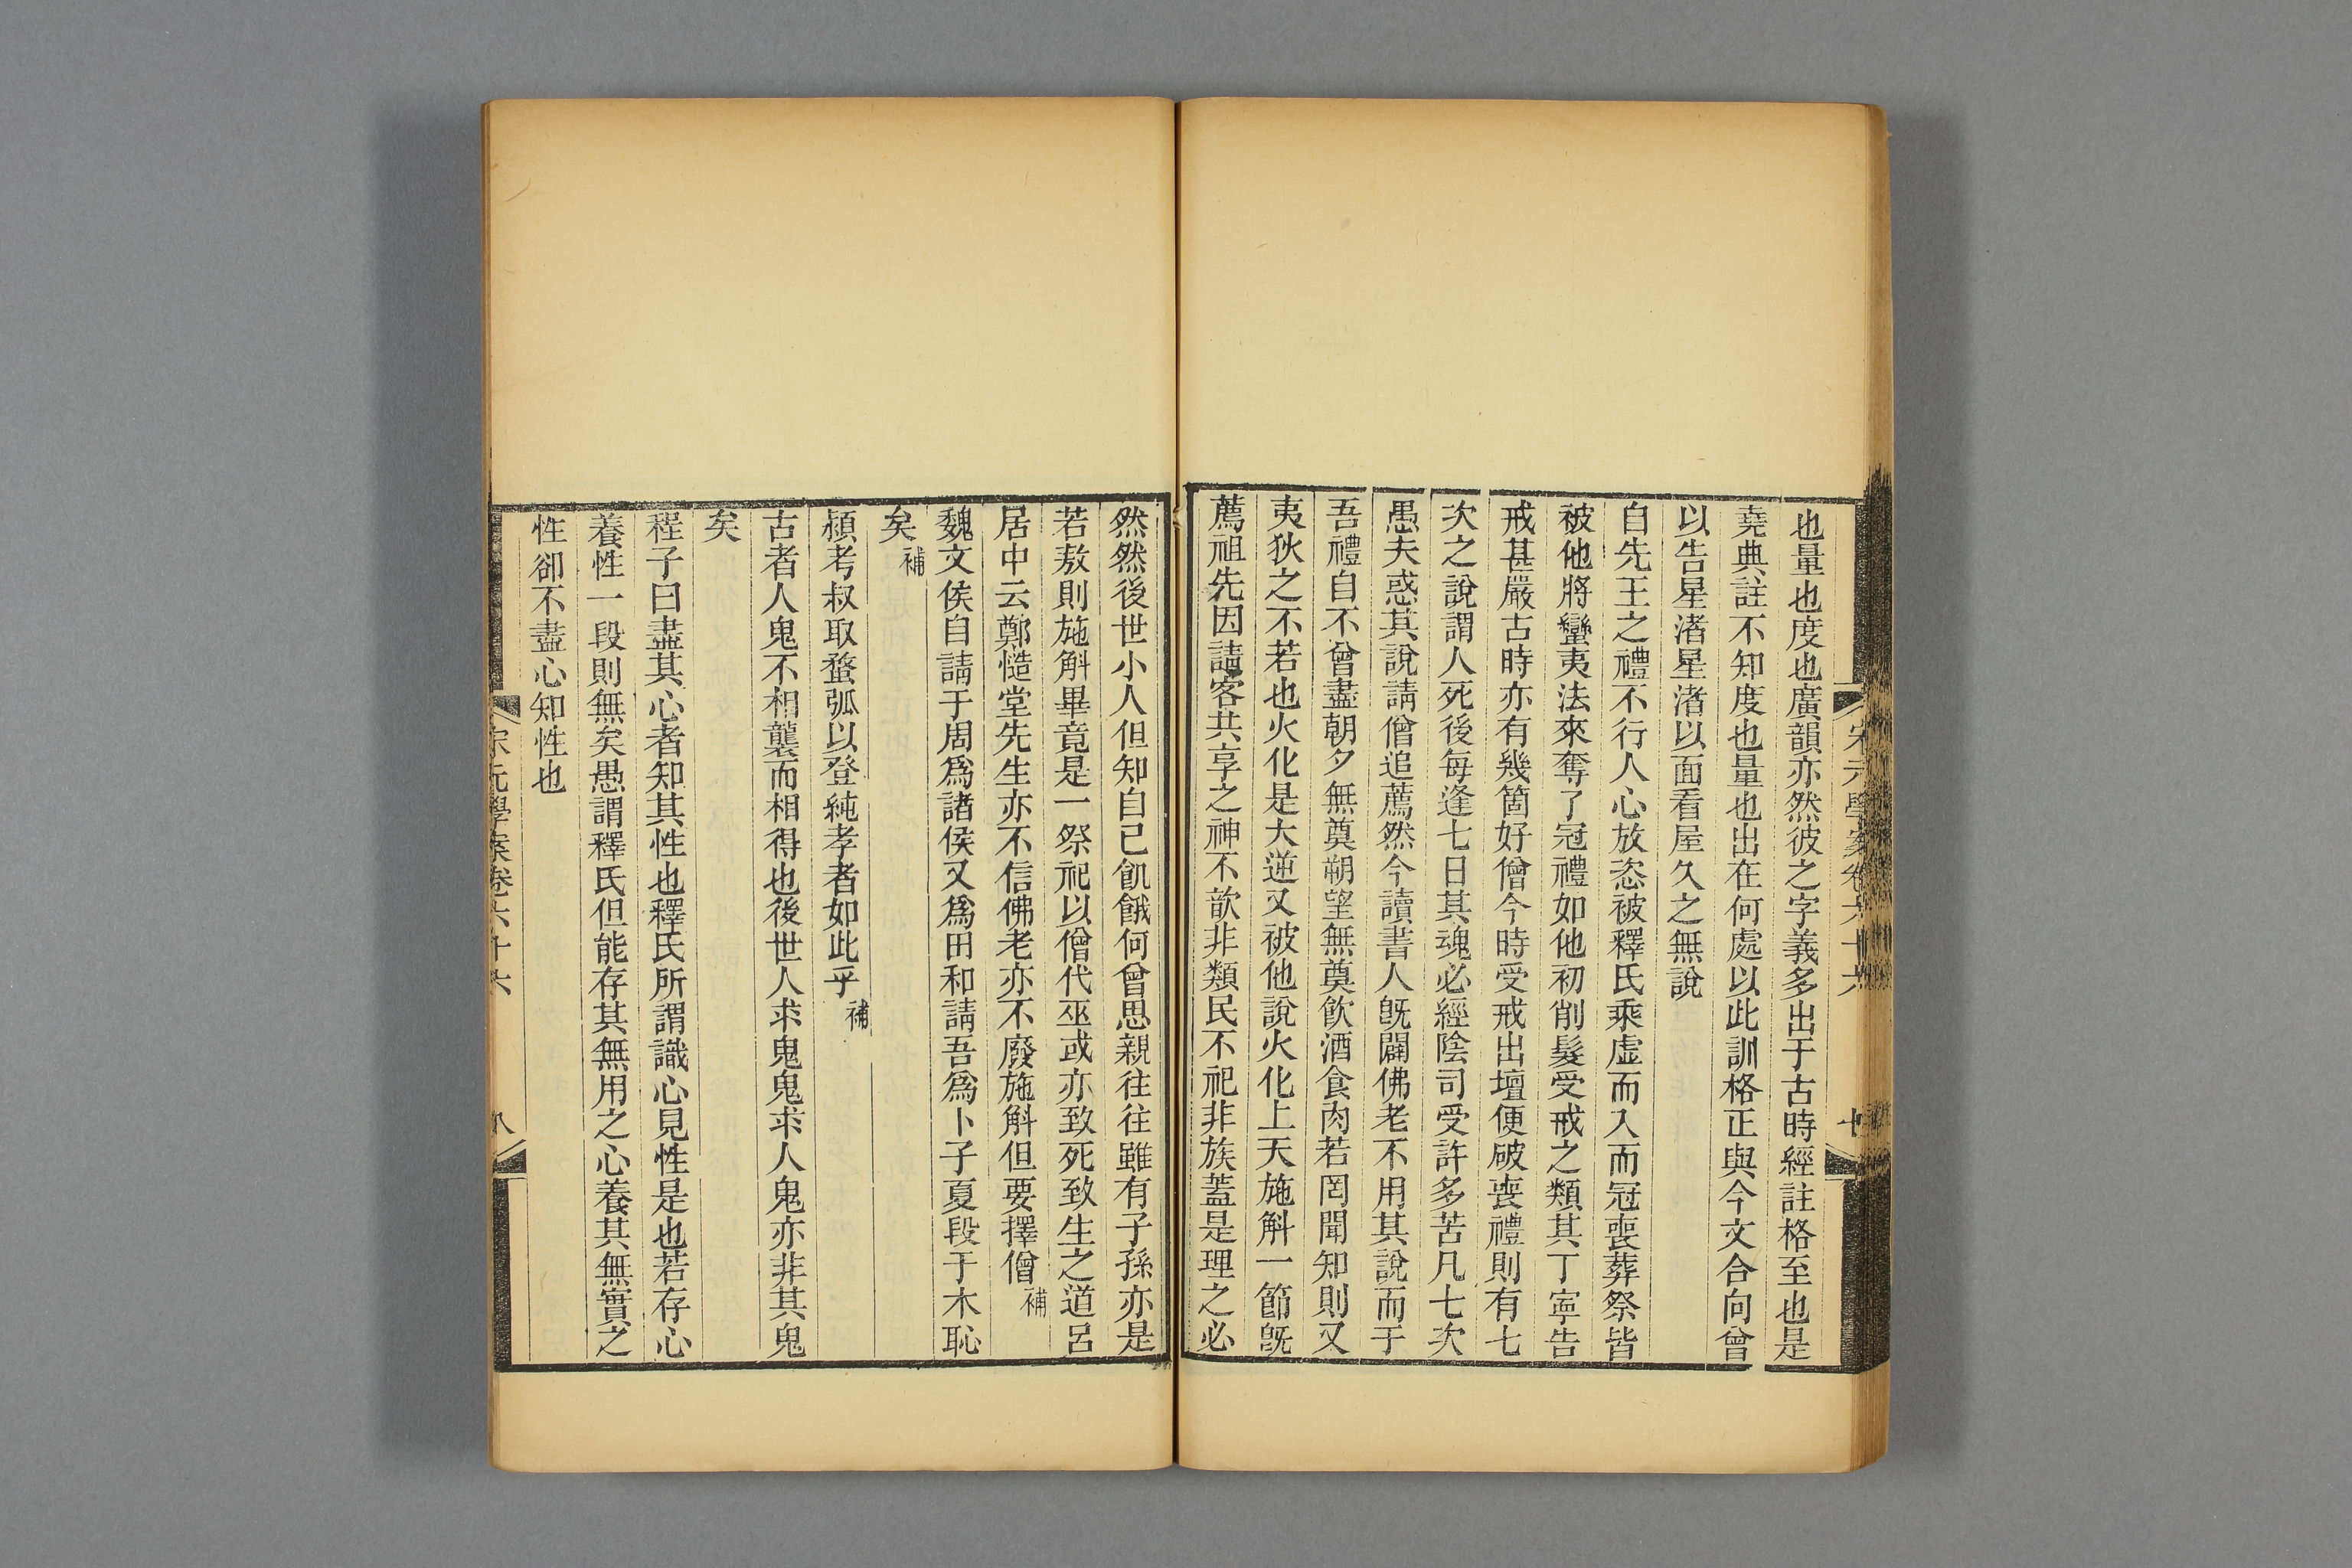 宋元學案卷六十六
七
也量也度也廣韻亦然彼之字義多出于古時經註格至也是
堯典註不知度也量也出在何處以此訓格正與今文合向曾
以告星渚星渚以面看屋久之無說
自先王之禮不行人心放恣被釋氏乘虛而入而冠喪葬祭皆
被他將蠻夷法來奪了冠禮如他初削髮受戒之類其丁寧告
戒甚嚴古時亦有幾箇好僧今時受戒出壇便破喪禮則有七
次之說謂人死後每逢七日其魂必經陰司受許多苦凡七次
愚夫惑其說請僧追薦然今讀書人旣闢佛老不用其說而于
吾禮自不曾盡朝夕無奠朔望無奠飲酒食肉若罔聞知則又
夷狄之不若也火化是大逆又被他說火化上天施斛一節旣
薦祖先因請客共享之神不歆非類民不祀非族蓋是理之必
然然後世小人但知自己飢餓何曾思親往往雖有子孫亦是
若敖則施斛畢竟是一祭祀以僧代巫或亦致死致生之道呂
居中云鄭慥堂先生亦不信佛老亦不廢施斛但要擇僧補
魏文侯自請于周爲諸侯又爲田和請吾爲卜子夏段干木恥
矣補
潁考叔取蝥弧以登純孝者如此乎補
古者人鬼不相襲而相得也後世人求鬼鬼求人鬼亦非其鬼
矣
程子曰盡其心者知其性也釋氏所謂識心見性是也若存心
養性一段則無矣愚謂釋氏但能存其無用之心養其無實之
性卻不盡心知性也
宋元學案卷六十六
八